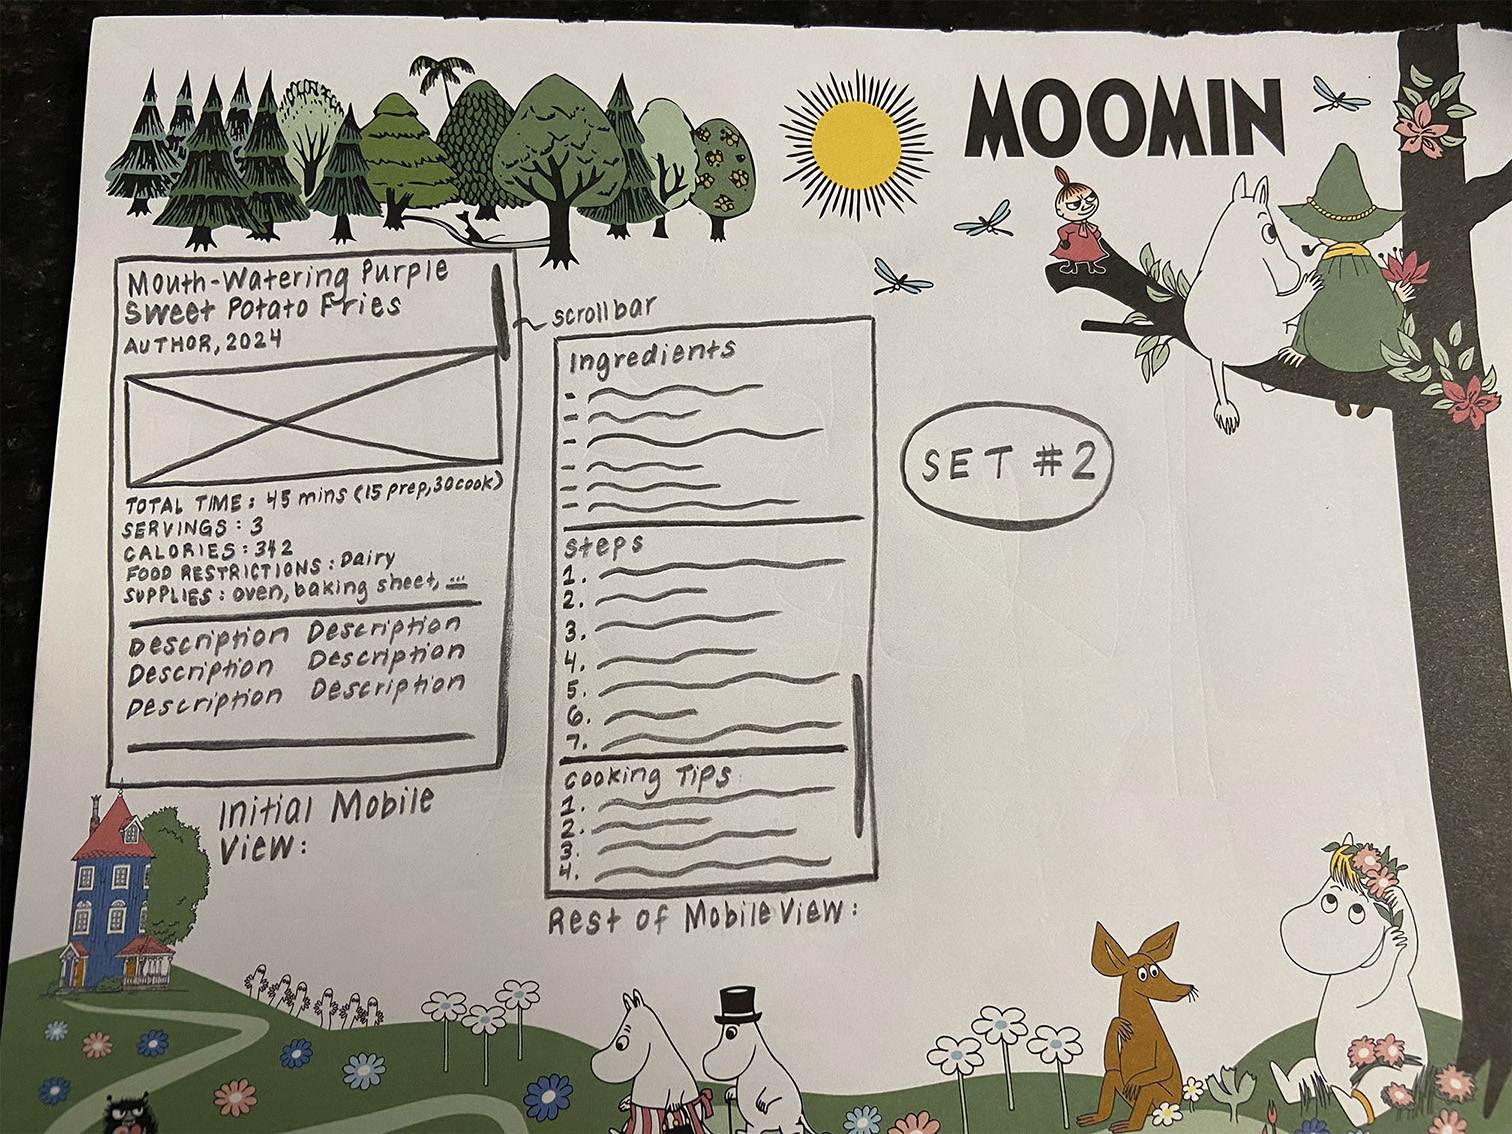 MOOMIN
Mouth-Watering Purple
Sweet Potato Fries
AUTHOR, 2024
TOTAL TIME: 45 mins (15 prep, 30 cook)
SERVINGS: 3
CALORIES: 342
FOOD RESTRICTIONS: Dairy
SUPPLIES: oven, baking sheet, ...
Description Description
Description Description
Description Description
Initial Mobile
View:
scrollbar
Ingredients
-
-
-
-
-
-
Steps
1.
2.
3.
4.
5.
6.
7.
Cooking Tips
1.
2.
3.
4.
Rest of Mobile View:
SET #2